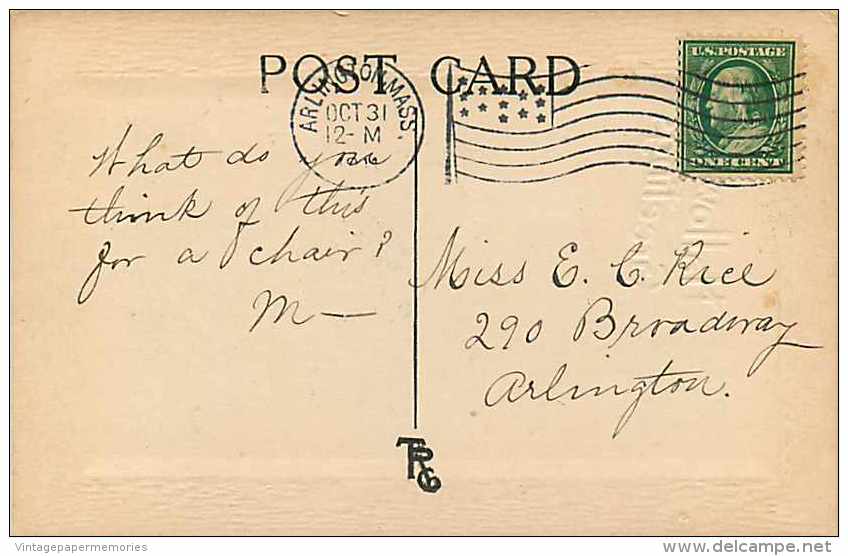 POST CARD
ARLINGTON, MASS.
OCT 31
12-M
U.S. POSTAGE
ONE CENT
What do you
think of this
for a chair?
M—
Miss E. C. Rice
290 Broadway
Arlington.
TRG
Vintagepapermemories
delcampe.net